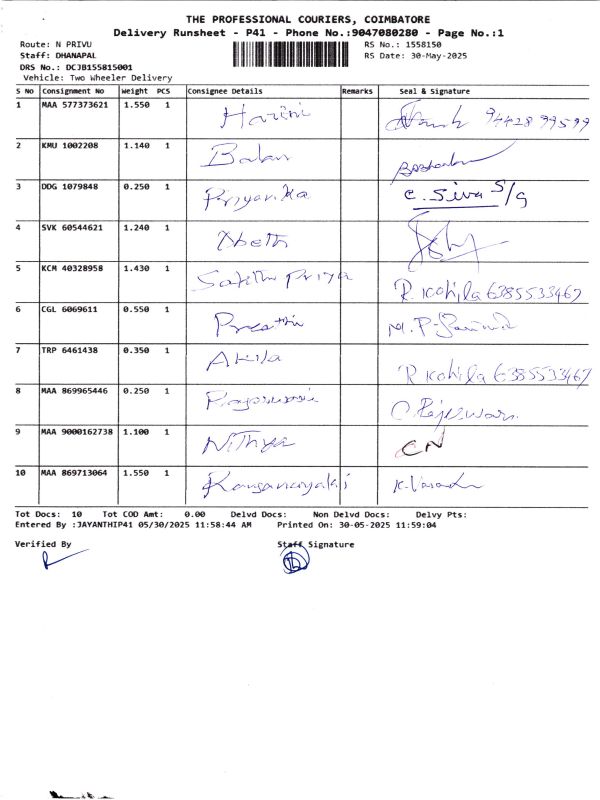 THE PROFESSIONAL COURIERS, COIMBATORE
Delivery Runsheet - P41 - Phone No.:9047080280 - Page No.:1
Route: N PRIVU RS No.: 1558150
Staff: DHANAPAL RS Date: 30-May-2025
DRS No.: DCJB155815001
Vehicle: Two Wheeler Delivery
S No Consignment No Weight PCS Consignee Details Remarks Seal & Signature
1 MAA 577373621 1.550 1 Harini 9442899599
2 KMU 1002208 1.140 1 Balan
3 DDG 1079848 0.250 1 Priyanka C. Siva S/G
4 SVK 60544621 1.240 1
5 KCM 40328958 1.430 1 Sakthi Priya R. Kohila 6385533467
6 CGL 6069611 0.550 1 Preethi M. P.
7 TRP 6461438 0.350 1 Akila R Kohila 6385533467
8 MAA 869965446 0.250 1 Rajeswari O. Rajeswari
9 MAA 9000162738 1.100 1 Nithya CN
10 MAA 869713064 1.550 1 K.
Tot Docs: 10 Tot COD Amt: 0.00 Delvd Docs: Non Delvd Docs: Delvy Pts:
Entered By :JAYANTHIP41 05/30/2025 11:58:44 AM Printed On: 30-05-2025 11:59:04
Verified By Staff Signature